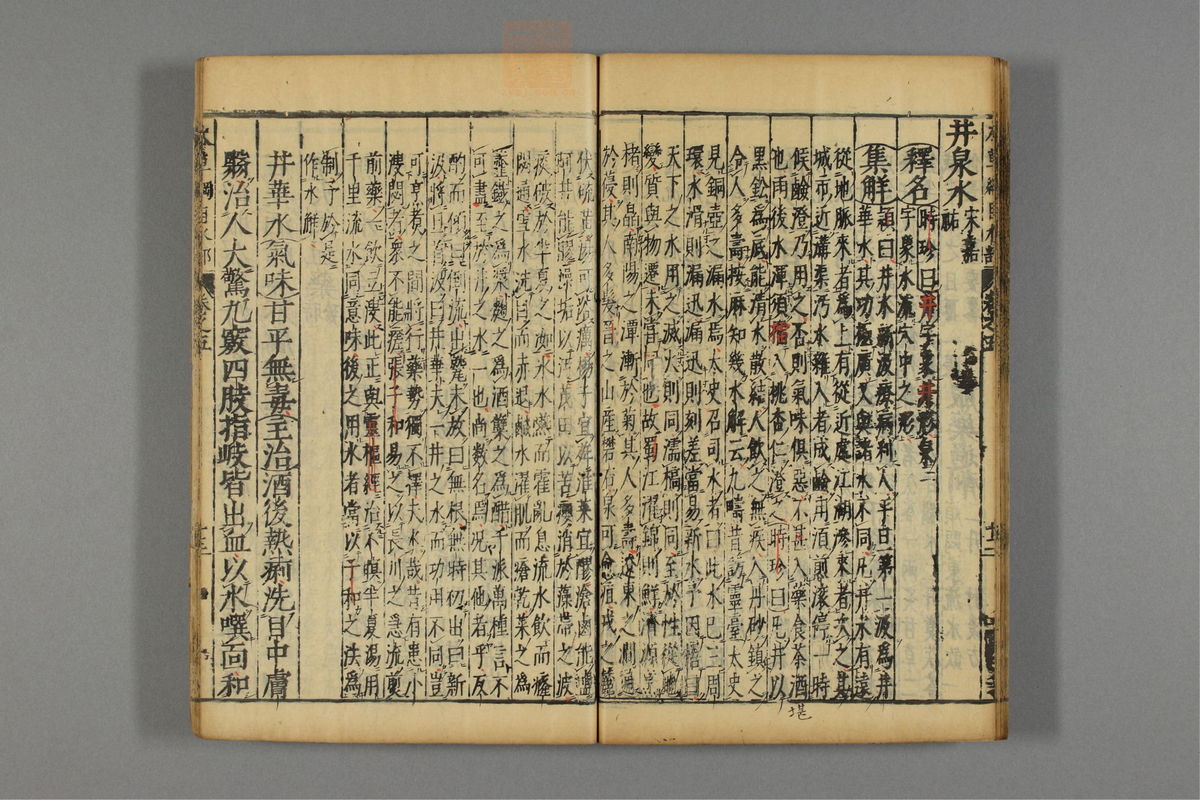 井泉水宋嘉祐
釋名時珍曰井字象井形泉
字象水流穴中之形
集解頌曰井水新汲療病利人平旦第一汲為井
華水其功極廣又與諸水不同凡井水有遠
從地脈來者為上有從近處江湖滲來者次之其
城市近溝渠污水雜入者成鹼用須煎滾停一時
候鹼澄乃用之否則氣味俱惡不甚入藥食茶酒
他雨後水渾須擂入桃杏仁澄之時珍曰凡井以
黑鉛為底能清水散結人飲之無疾入丹砂鎮之
令人多壽按麻知幾水解云九疇昔訪靈臺太史
見銅壺之漏水焉太史召司水者曰此水已三周
環水滑則漏迅漏迅則刻差當易新水予因悟曰
天下之水用之滅火則同濡槁則同至於性從地
變質與物遷未嘗同也故蜀江濯錦則鮮濟源烹
楮則晶南陽之潭漸於菊其人多壽遼東之澗通
於參其人多髮晉之山産礬石泉可愈疽戎之麓
伏硫黃湯可浴癘揚子宜荈淮萊宜醪滄鹵能鹽
阿井能膠澡垢以污茂田以苦癭消於藻帶之波
痰破於半夏之洳冰水嚥而霍亂息流水飲而癃
閟通雪水洗目而赤退鹹水濯肌而瘡乾菜之為
虀鐵之為漿麴之為酒糵之為醋千派萬種言不
可盡至於井之水一也尚數名焉況其他者乎反
酌而傾曰倒流出甃未放曰無根無時初出曰新
汲將旦首汲曰井華夫一井之水而功用不同豈
可烹煮之間將行藥勢獨不擇夫水哉昔有患小
溲閟者眾不能瘳張子和易之以長川之急流煎
前藥一飲立溲此正與靈樞經治不瞑半夏湯用
千里流水同意味後之用水者當以子和之法為
制予於是
作水解
井華水氣味甘平無毒主治酒後熱痢洗目中膚
翳治人大驚九竅四肢指歧皆出血以水噀面和
堪